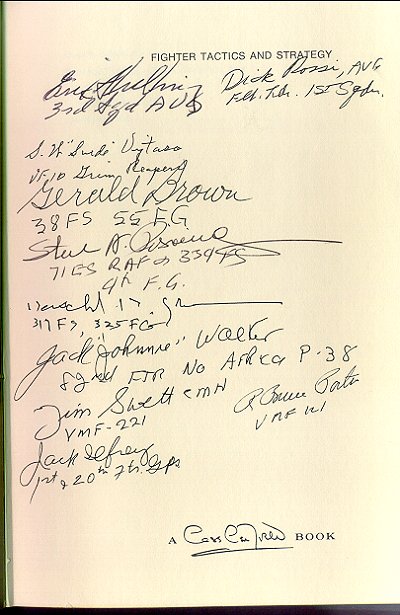 FIGHTER TACTICS AND STRATEGY
Eric Shilling
3rd Sqd AVG
Dick Rossi, AVG
Flt. Ldr. 1st Sqdn.
S. W. "Swede" Vejtasa
VF 10 Grim Reapers
Gerald Brown
38 FS 55 F.G.
Steve
71 ES RAF 334 FS
4th F.G.
317 FS, 325 FG
Jack "Johnnie" Walter
82nd FTR No AFRCA P-38
Jim Swett CMH
VMF-221
R Bruce Porter
VMF 121
Jack Ilfrey
1st & 20th Ftr. Gps
A Cass Canfield BOOK